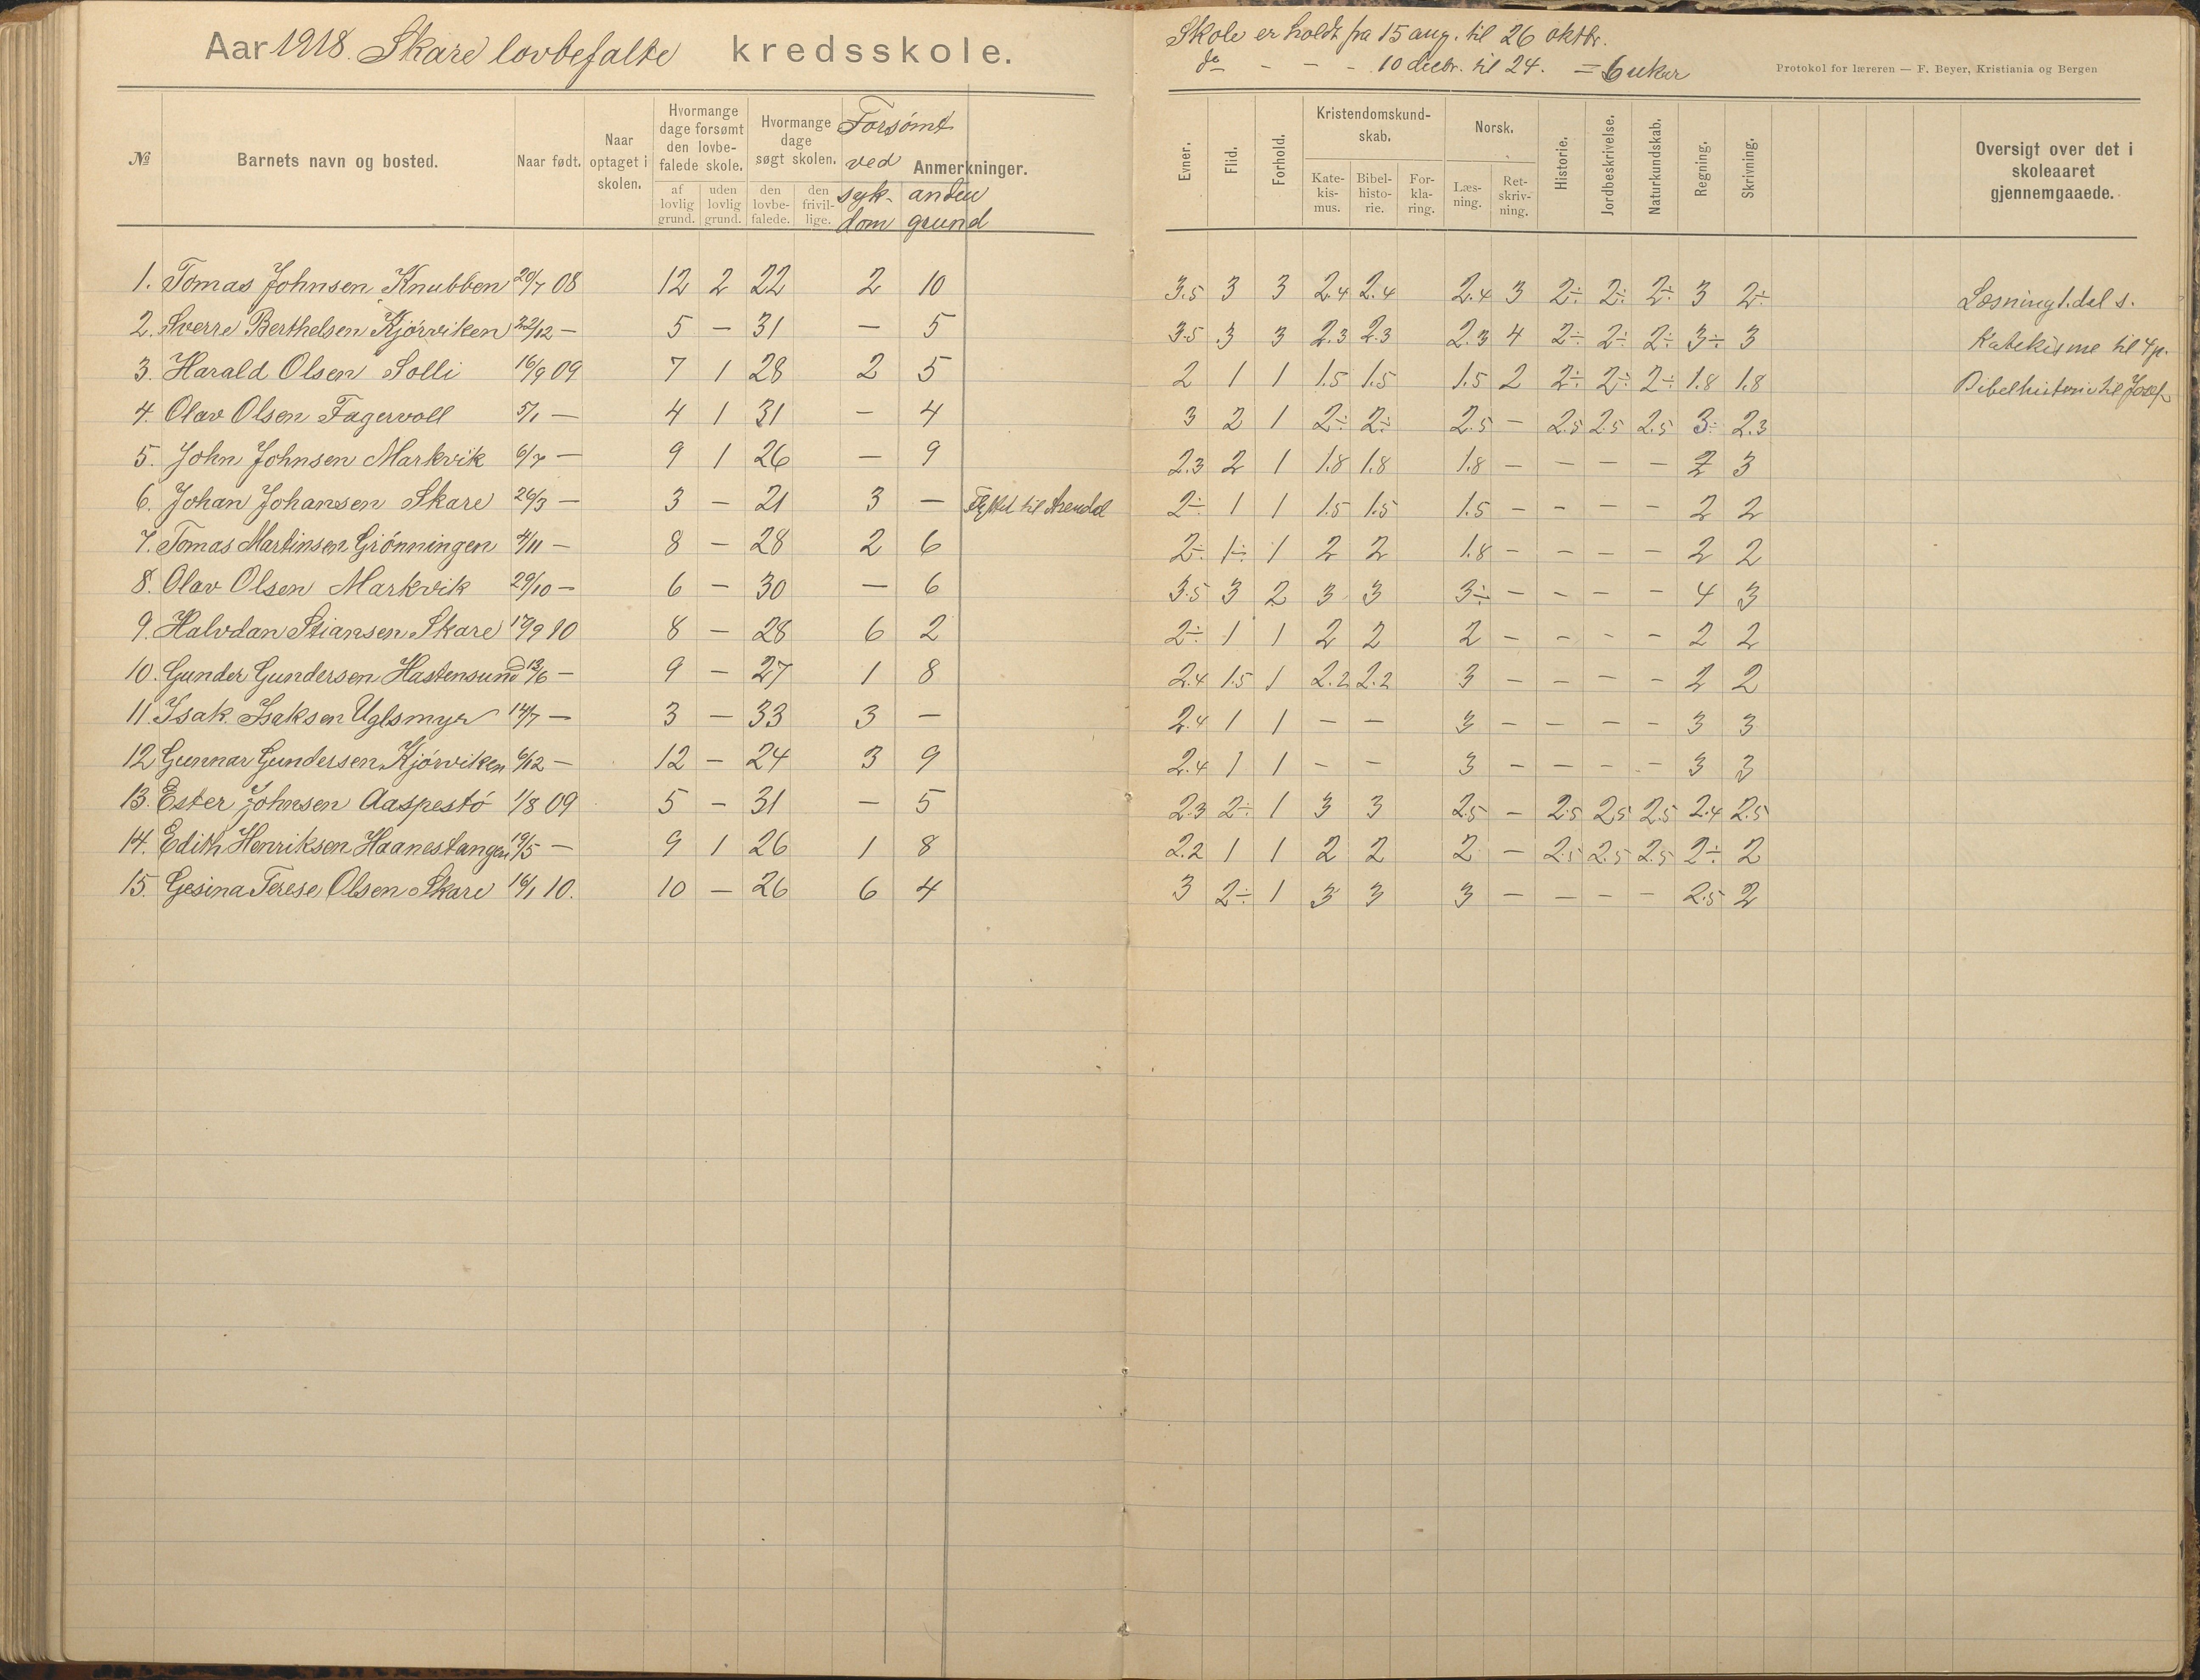 Aar 1918. Skare lovbefalte kredsskole.
№ Barnets navn og bosted. Naar født. Naar optaget i skolen. Hvormange dage forsømt den lovbefalede skole. af lovlig grund. uden lovlig grund. Hvormange dage søgt skolen. den lovbefalede. den frivillige. Forsømt ved sykdom anden grund Anmerkninger.
1. Tomas Johnsen Knubben 20/7 08 12 2 22 2 10
2. Sverre Berthelsen Kjørviken 22/12 — 5 — 31 — 5
3. Harald Olsen Solli 16/9 09 7 1 28 2 5
4. Olav Olsen Fagervoll 5/1 — 4 1 31 — 4
5. John Johnsen Markvik 6/7 — 9 1 26 — 9
6. Johan Johansen Skare 26/3 — 3 — 21 3 — Flyttet til Arendal
7. Tomas Martinsen Grønningen 4/11 — 8 — 28 2 6
8. Olav Olsen Markvik 29/10 — 6 — 30 — 6
9. Halvdan Stiansen Skare 17/9 10 8 — 28 6 2
10. Gunder Gundersen Hastensund 13/6 — 9 — 27 1 8
11. Isak Isaksen Uglsmyr 14/7 — 3 — 33 3 —
12 Gunnar Gundersen Kjørviken 6/12 — 12 — 24 3 9
13. Ester Johnsen Aaspestø 1/8 09 5 — 31 — 5
14. Edith Henriksen Haanestangen 19/5 — 9 1 26 1 8
15. Gesina Terese Olsen Skare 16/1 10. 10 — 26 6 4
Skole er holdt fra 15 aug. til 26 oktbr.
do - - - 10 decbr. til 24. = 6 uker
Protokol for læreren — F. Beyer, Kristiania og Bergen
Evner. Flid. Forhold. Kristendomskundskab. Katekismus. Bibelhistorie. Forklaring. Norsk. Læsning. Retskrivning. Historie. Jordbeskrivelse. Naturkundskab. Regning. Skrivning. Oversigt over det i skoleaaret gjennemgaaede.
3.5 3 3 2.4 2.4 2.4 3 2÷ 2÷ 2÷ 3 2÷ Læsning 1. del s.
3.5 3 3 2.3 2.3 2.3 4 2÷ 2÷ 2÷ 3÷ 3 Katekisme til 4 p.
2 1 1 1.5 1.5 1.5 2 2÷ 2÷ 2÷ 1.8 1.8 Bibelhistorie til Josef
3 2 1 2÷ 2÷ 2.5 — 2.5 2.5 2.5 3÷ 2.3
2.3 2 1 1.8 1.8 1.8 — — — — 2 3
2÷ 1 1 1.5 1.5 1.5 — — — — 2 2
2÷ 1÷ 1 2 2 1.8 — — — — 2 2
3.5 3 2 3 3 3÷ — — — — 4 3
2÷ 1 1 2 2 2 — — — — 2 2
2.4 1.5 1 2.2 2.2 3 — — — — 2 2
2.4 1 1 — — 3 — — — — 3 3
2.4 1 1 — — 3 — — — — 3 3
2.3 2÷ 1 3 3 2.5 — 2.5 2.5 2.5 2.4 2.5
2.2 1 1 2 2 2 — 2.5 2.5 2.5 2÷ 2
3 2÷ 1 3 3 3 — — — — 2.5 2